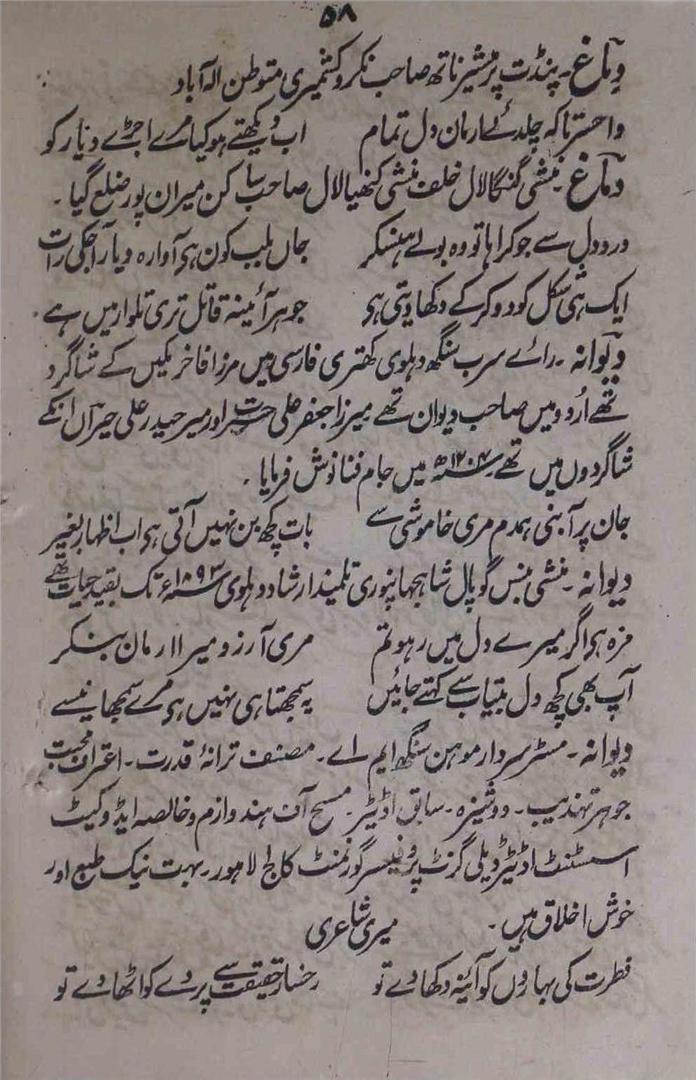 ۵۸
دماغ۔ پنڈت پرمیشر ناتھ صاحب نکرو کشمیری متوطن الہ آباد
واحسرتا کہ چلدئے ارمان دل تمام اب دیکھتے ہو کیا مرے اجڑے دیار کو
دماغ۔ منشی گنگا لال خلف منشی کنھیا لال صاحب ساکن میران پور ضلع گیا۔
درد دل سے جو کراہا تو وہ بولے ہنسکر جاں بلب کون ہی آوارہ دیار آجکی رات
ایک ہی شکل کو دو کر کے دکھا دیتی ہی جوہر آئینہ قاتل تری تلوار میں ہے۔
دیوانہ۔ رائے سرب سنگھ دہلوی کھتری فارسی میں مرزا فاخر مکیں کے شاگرد
تھے اردو میں صاحب دیوان تھے میرزا جعفر علی حسرت اور میر حیدر علی حیراں انکے
شاگردوں میں تھے۔ ۱۲۰۴ھ میں جام فنا نوش فرمایا۔
جان پر آ بنی ہمدم مری خاموشی سے بات کچھ بن نہیں آتی ہی اب اظہار بغیر
دیوانہ۔ منشی بنس گوپال شاہجہانپوری تلمیذ ارشاد دہلوی ۱۸۹۳ء تک بقید حیات تھے
مزہ ہی اگر میرے دل میں رہو تم مری آرزو میرا ارمان بنکر
آپ بھی کچھ دل بیتاب سے کہتے جائیں یہ سمجھتا ہی نہیں ہی مرے سمجھانیسے
دیوانہ۔ مسٹر سردار موہن سنگھ ایم اے۔ مصنف ترانۂ قدرت۔ اعتراف محبت
جوہر تہذیب۔ دوشیزہ۔ سابق اڈیٹر۔ مسیح آف ہندوازم و خالصہ ایڈوکیٹ
اسسٹنٹ اڈیٹر ڈیلی گزٹ پروفیسر گورنمنٹ کالج لاہور۔ بہت نیک طبع اور
خوش اخلاق ہیں۔ میری شاعری
فطرت کی بہاروں کو آئنہ دکھا دے تو رخسار حقیقت سے پردے کو اٹھا دے تو